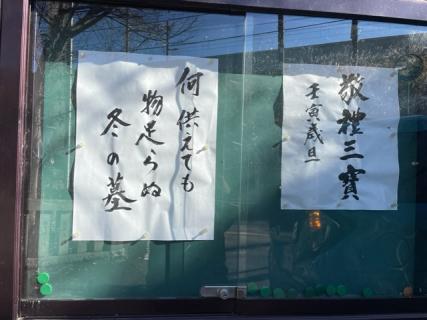 敬禮三寶
壬寅歳旦
何供えても
物足らぬ
冬の墓